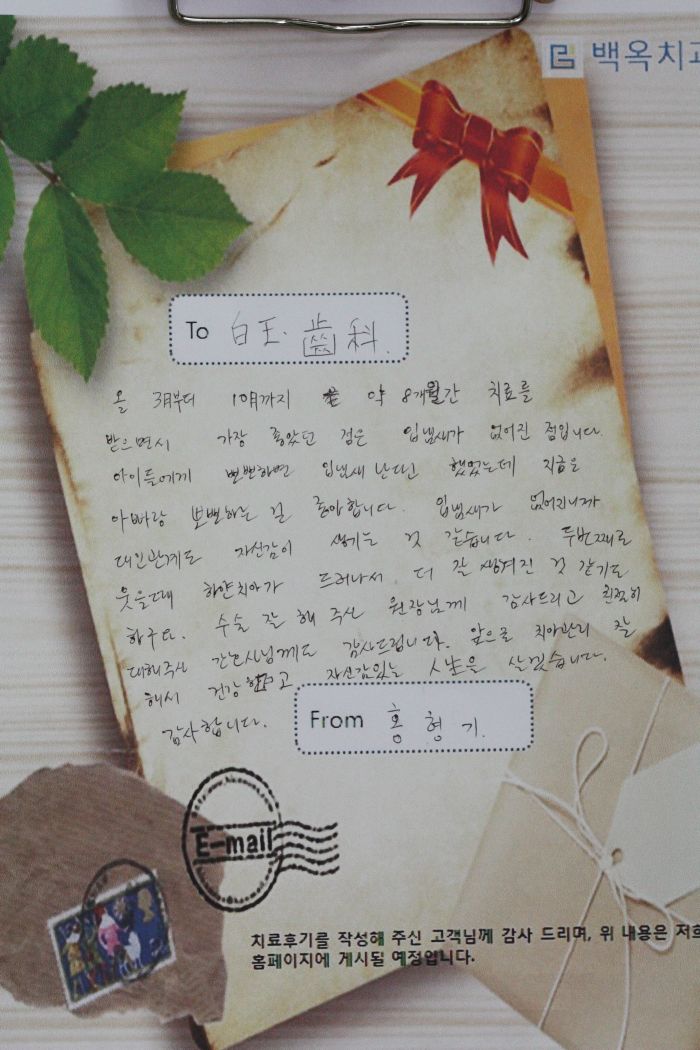 백옥치과
To 白玉·齒科.
올 3月부터 10月까지 약 8개月간 치료를
받으면서 가장 좋았던 점은 입냄새가 없어진 점입니다.
아이들에게 뽀뽀하면 입냄새 난다고 했었는데 지금은
아빠랑 뽀뽀하는 걸 좋아합니다. 입냄새가 없어지니까
대인관계도 자신감이 생기는 것 같습니다. 두번째로
웃을때 하얀치아가 드러나서 더 잘 생겨진 것 같기도
하구요. 수술 잘 해 주신 원장님께 감사드리고 친절히
대해주신 간호사님께도 감사드립니다. 앞으로 치아관리 잘
해서 건강하고 자신감있는 人生을 살겠습니다.
감사합니다.
From 홍형기.
E-mail
치료후기를 작성해 주신 고객님께 감사 드리며, 위 내용은 저희
홈페이지에 게시될 예정입니다.